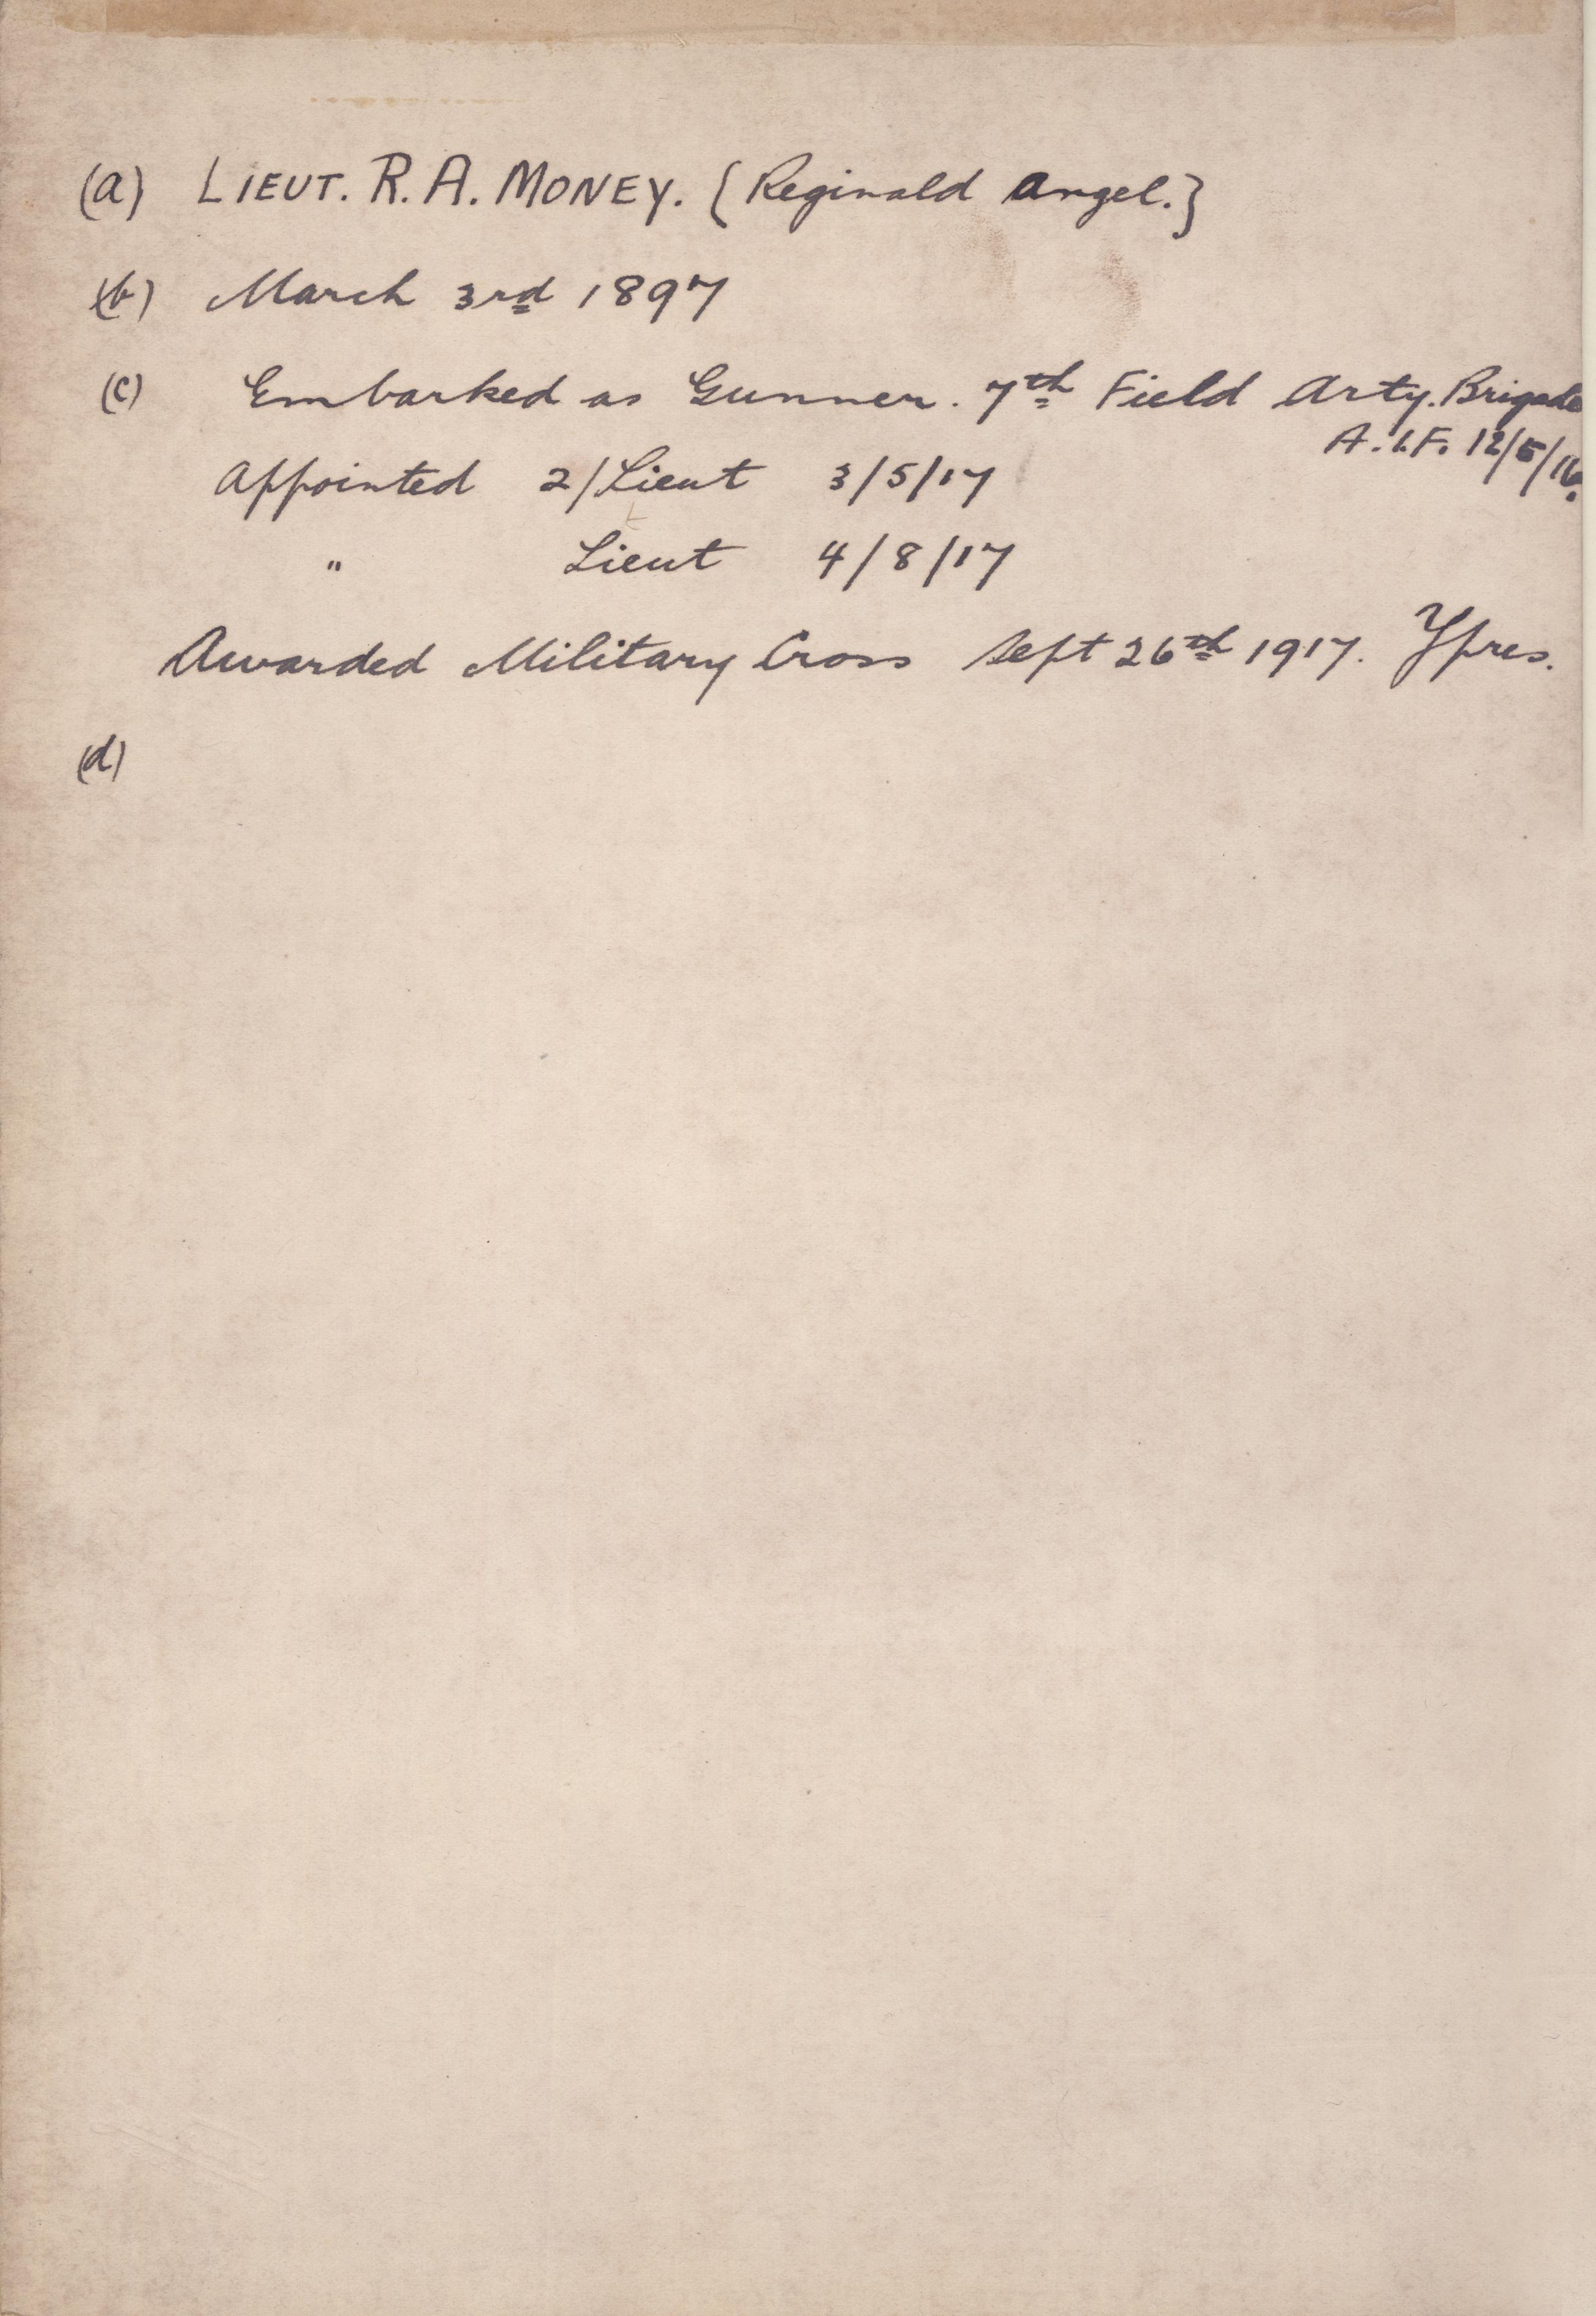 (a) LIEUT. R. A. MONEY. {Reginald Angel.}
(b) March 3rd 1897
(c) Embarked as Gunner. 7th Field Arty. Brigade
A.I.F. 12/5/16.
Appointed 2/Lieut 3/5/17
" Lieut 4/8/17
Awarded Military Cross Sept 26th 1917. Ypres.
(d)